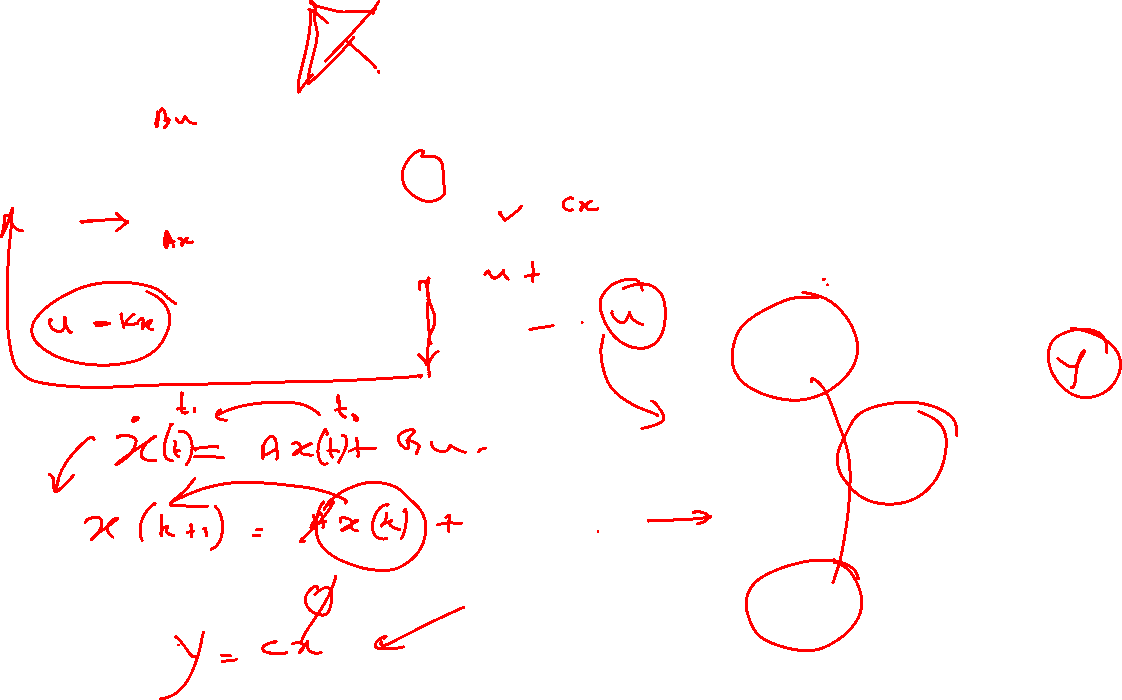 Bu
Cx
Ax
u +
u = Kx
u
y
t₁ t₀
ẋ(t) = Ax(t) + Bu.
x(k+1) = Ax(k) +
y = cx